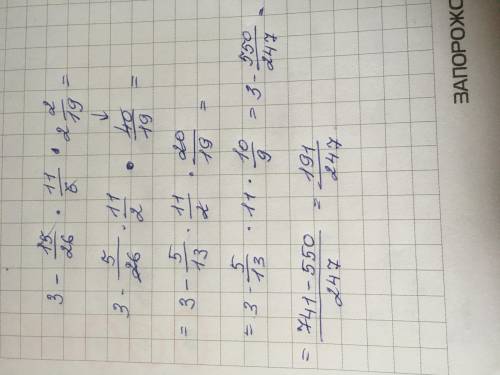 3 - 15/26 · 11/5 · 2 2/19 =
3 - 5/26 · 11/2 · 40/19 =
= 3 - 5/13 · 11/2 · 20/19 =
= 3 - 5/13 · 11 · 10/9 = 3 - 550/247 =
= 741-550/247 = 191/247
ЗАПОРОЖС